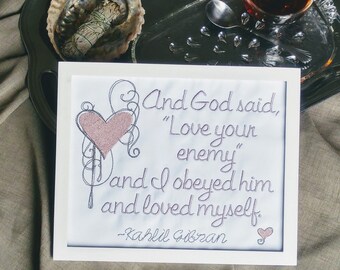 And God said,
"Love your
enemy"
and I obeyed him
and loved myself.
-Kahlil Gibran